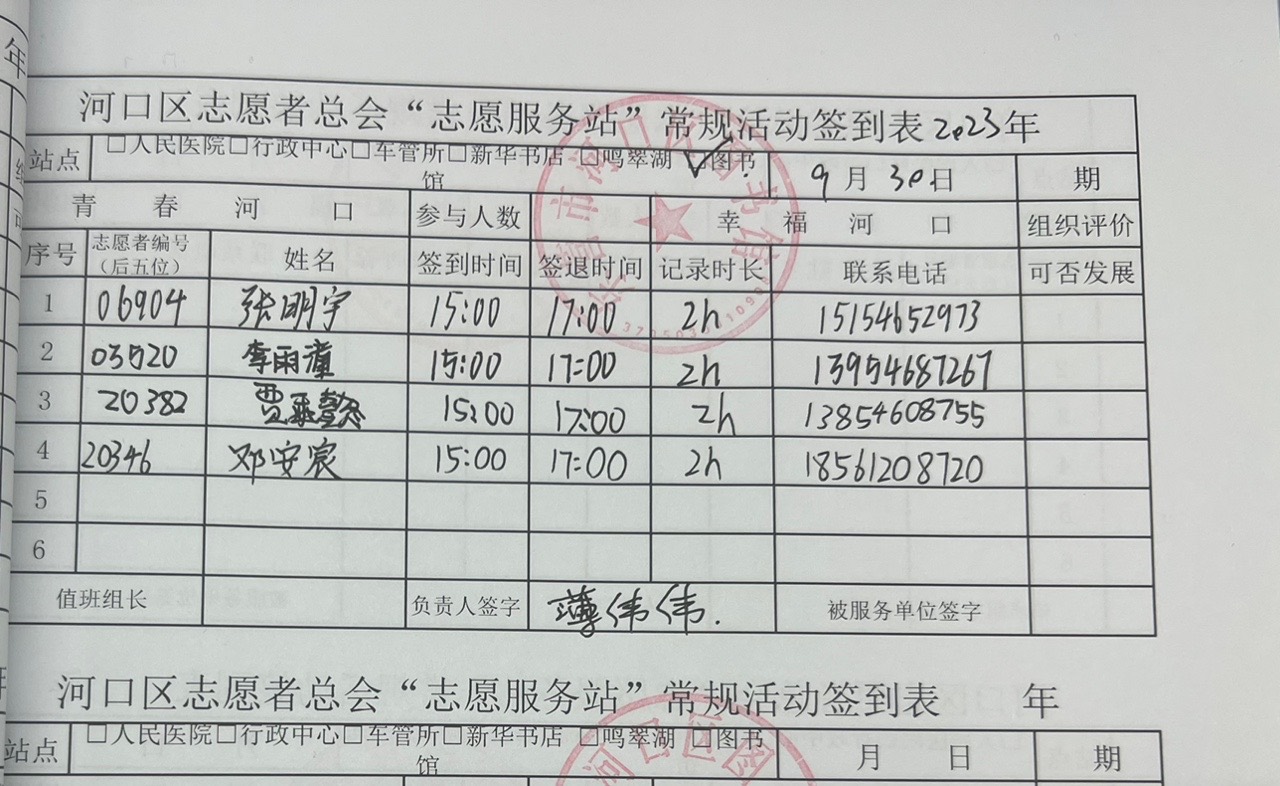 年
河口区志愿者总会“志愿服务站”常规活动签到表2023年
站点 □人民医院□行政中心□车管所□新华书店 □鸣翠湖 ☑图书馆 9月30日 期
青春河口 参与人数 幸福河口 组织评价
序号 志愿者编号（后五位） 姓名 签到时间 签退时间 记录时长 联系电话 可否发展
1 06904 张明宇 15:00 17:00 2h 15154652973
2 03520 李雨潼 15:00 17:00 2h 13954687267
3 20382 贾承懿 15:00 17:00 2h 13854608755
4 20346 邓安宸 15:00 17:00 2h 18561208720
5
6
值班组长 负责人签字 薄伟伟. 被服务单位签字
河口区志愿者总会“志愿服务站”常规活动签到表 年
站点 □人民医院□行政中心□车管所□新华书店 □鸣翠湖 □图书馆 月 日 期
东营市河口区图书馆
河口区图